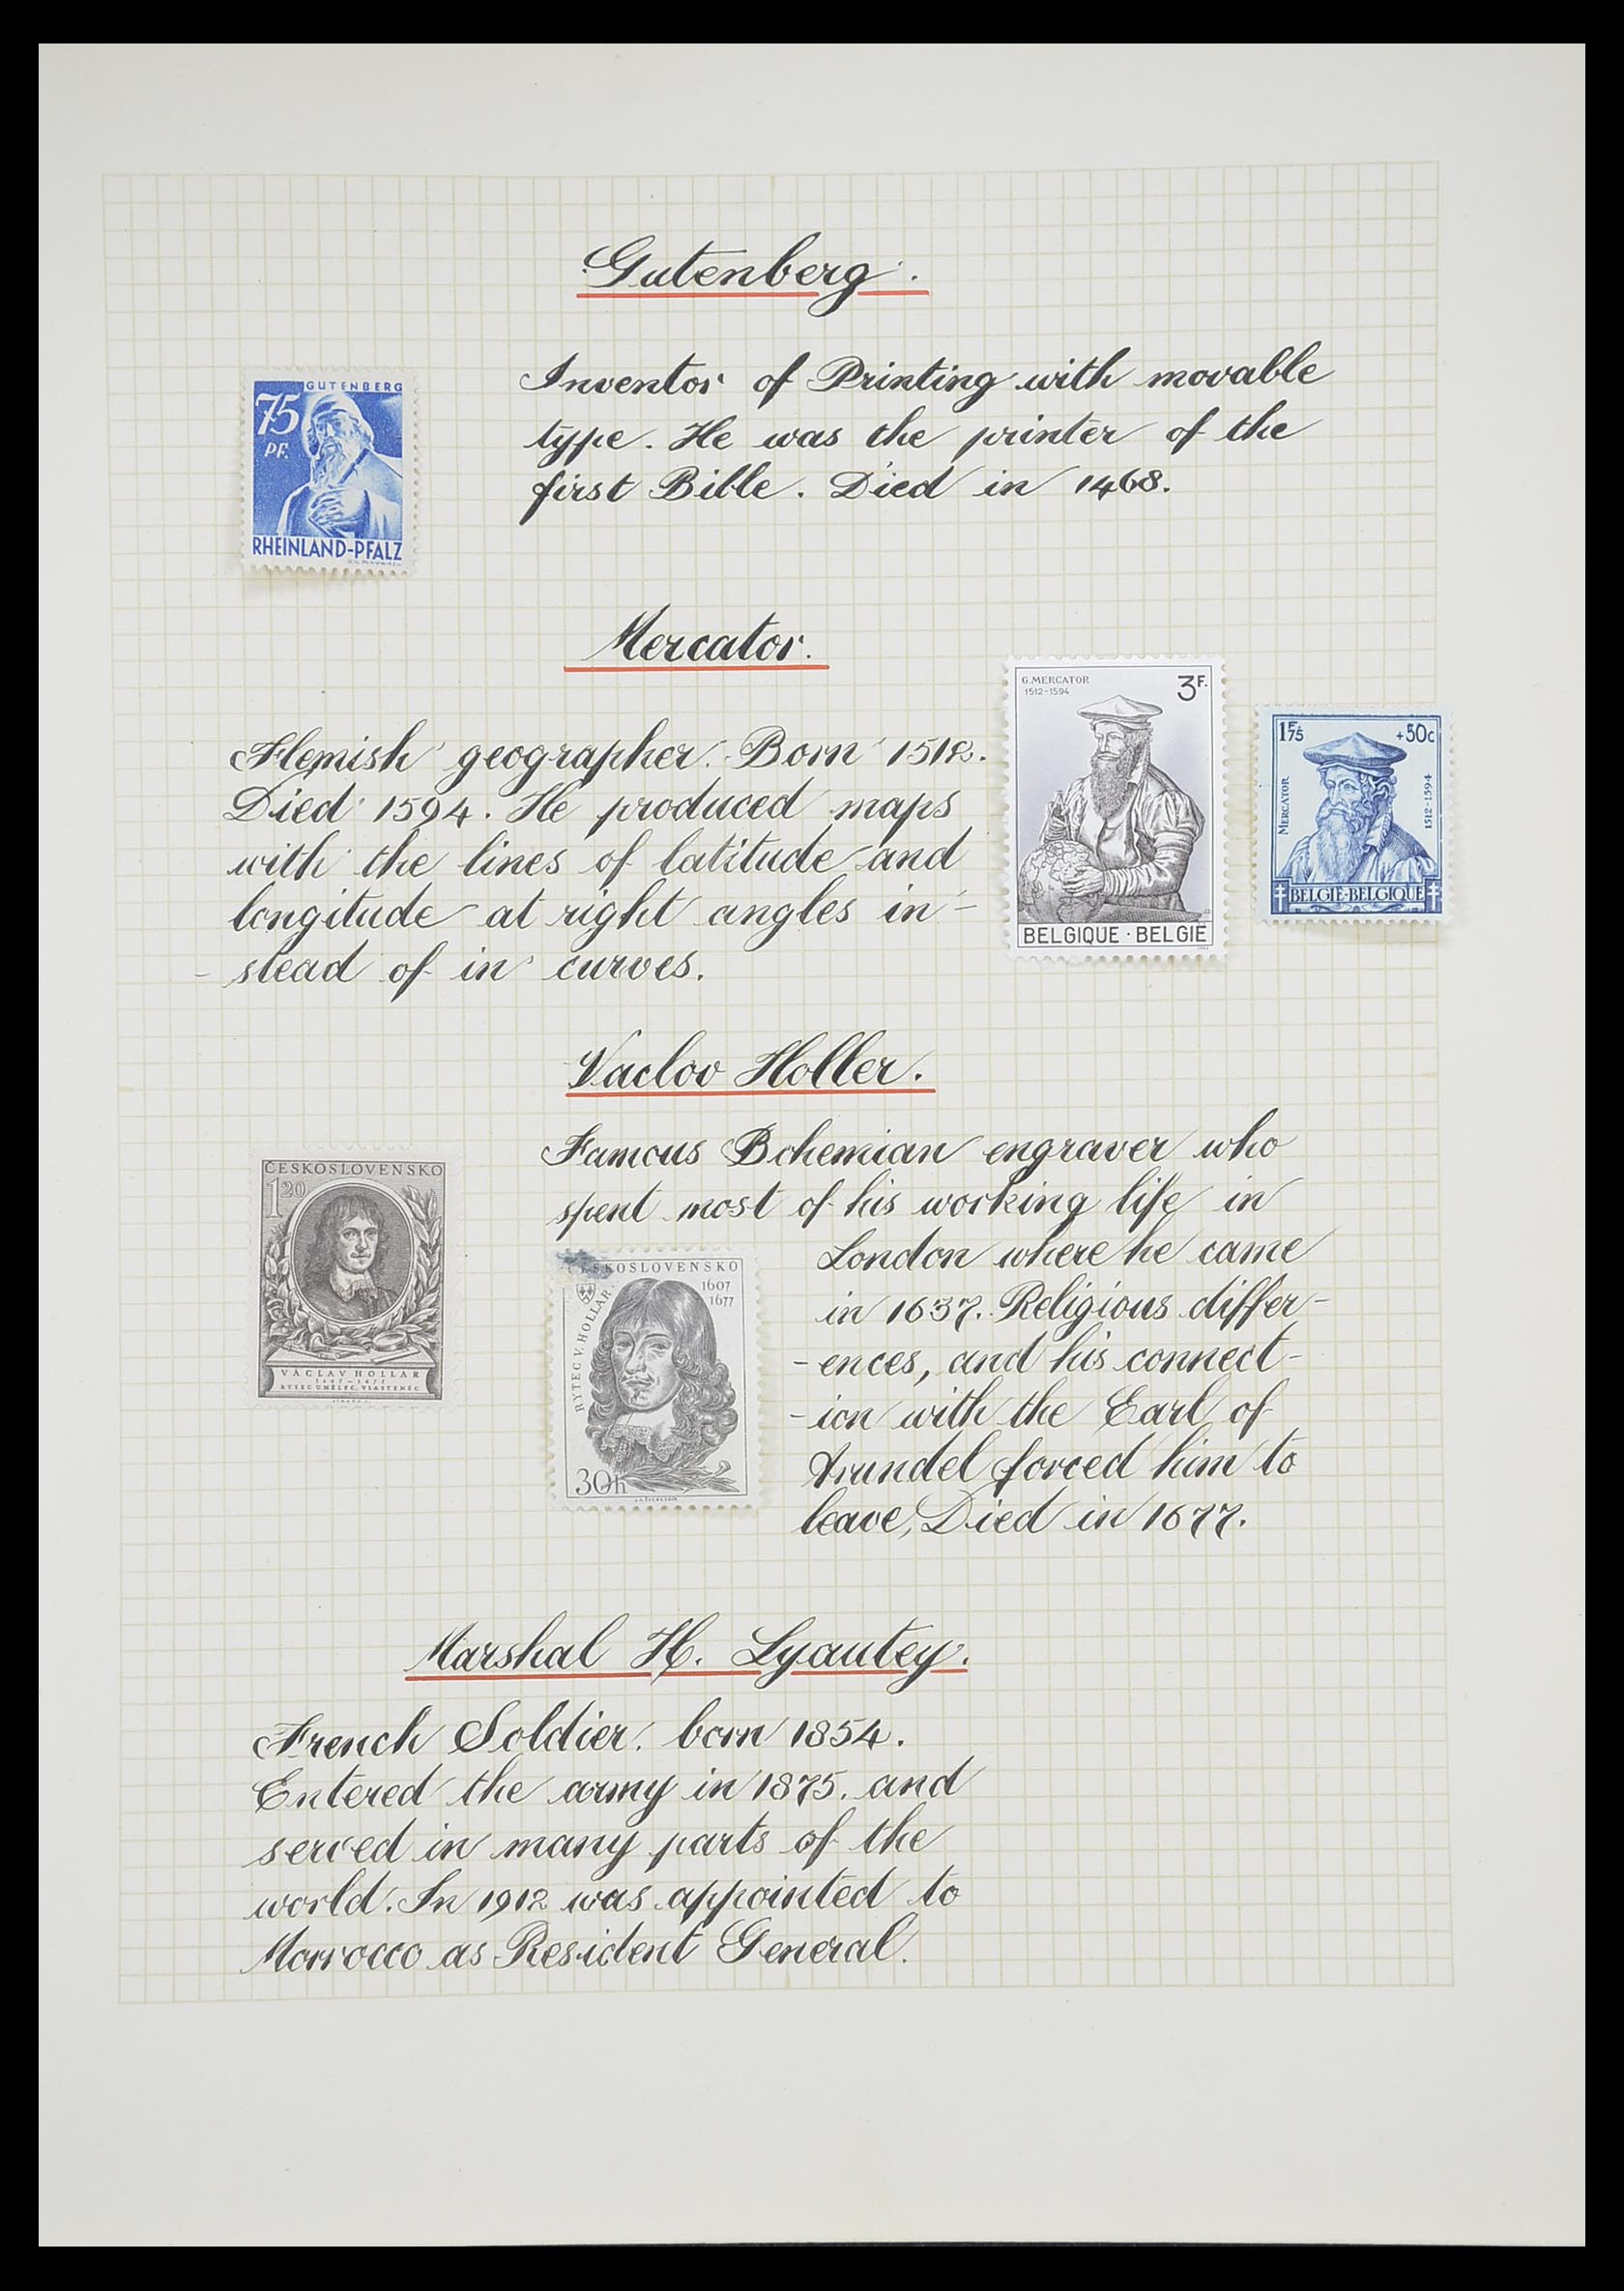 Gutenberg.
GUTENBERG
75
PF.
RHEINLAND-PFALZ
Inventor of Printing with movable
type. He was the printer of the
first Bible. Died in 1468.
Mercator.
Flemish geographer. Born 1512.
Died 1594. He produced maps
with the lines of latitude and
longitude at right angles in-
-stead of in curves.
G.MERCATOR
1512-1594
3F.
BELGIQUE · BELGIË
1F75
+50c
MERCATOR
1512-1594
BELGIË-BELGIQUE
Vaclov Holler.
ČESKOSLOVENSKO
120
VÁCLAV HOLLAR
1607-1677
RYTEC UMĚLEC, VLASTENEC
Famous Bohemian engraver who
spent most of his working life in
London where he came
in 1637. Religious differ-
-ences, and his connect-
-ion with the Earl of
Arundel forced him to
leave, Died in 1677.
ČESKOSLOVENSKO
1607
1677
RYTEC V. HOLLAR
30h
Marshal H. Lyautey.
French Soldier. born 1854.
Entered the army in 1875. and
served in many parts of the
world. In 1912 was appointed to
Morrocco as Resident General.